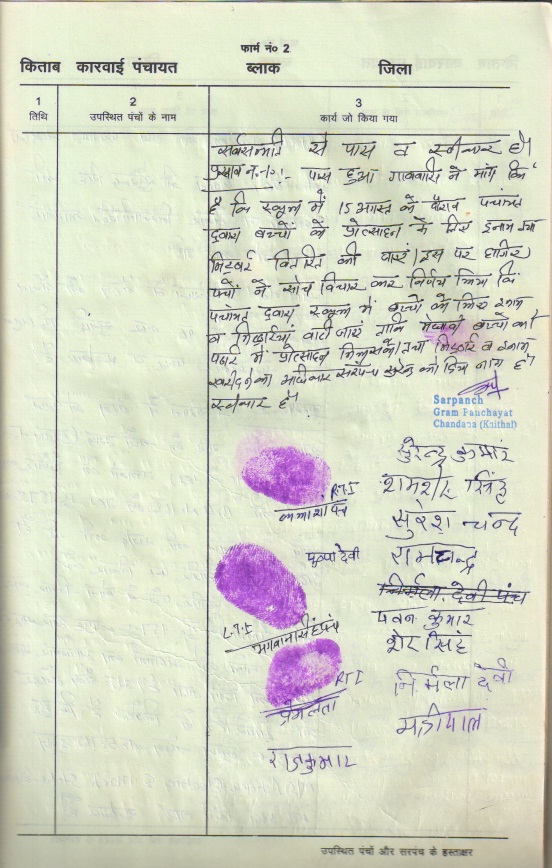 फार्म नं० 2
किताब कारवाई पंचायत ब्लाक जिला
1 2 3
तिथि उपस्थित पंचों के नाम कार्य जो किया गया
सर्वसम्मति से पास व स्वीकार है।
प्रस्ताव न.-10:- पास हुआ गाववासि ने मांग कि
है कि स्कूल में 15 अगस्त के पंचायत
द्वारा बच्चों के प्रोत्साहन के लिए इनाम तथा
वितरित की जाए। इस पर हाजिर
पंचों ने सोच विचार कर निर्णय लिया कि
पंचायत द्वारा स्कूल में बच्चों के लिए इनाम
व मिठाईयां बाटी जाए ताकि बच्चों को
पढाई में प्रोत्साहन मिल सके। तथा मिठाई व इनाम
खरीदने का अधिकार सरपंच को दिया जाता है
स्वीकार है।
Sarpanch
Gram Panchayat
Chandana (Kaithal)
सुरेन्द्र कुमार
R.T.I शमशेर सिंह
सुरेश चन्द
पुष्पा देवी रामचन्द्र
निर्मला देवी पंच
L.T.I पवन कुमार
भगवान सिंह पंच शेर सिंह
RTI निर्मला देवी
प्रेमलता
महीपाल
राजकुमार
उपस्थित पंचों और सरपंच के हस्ताक्षर